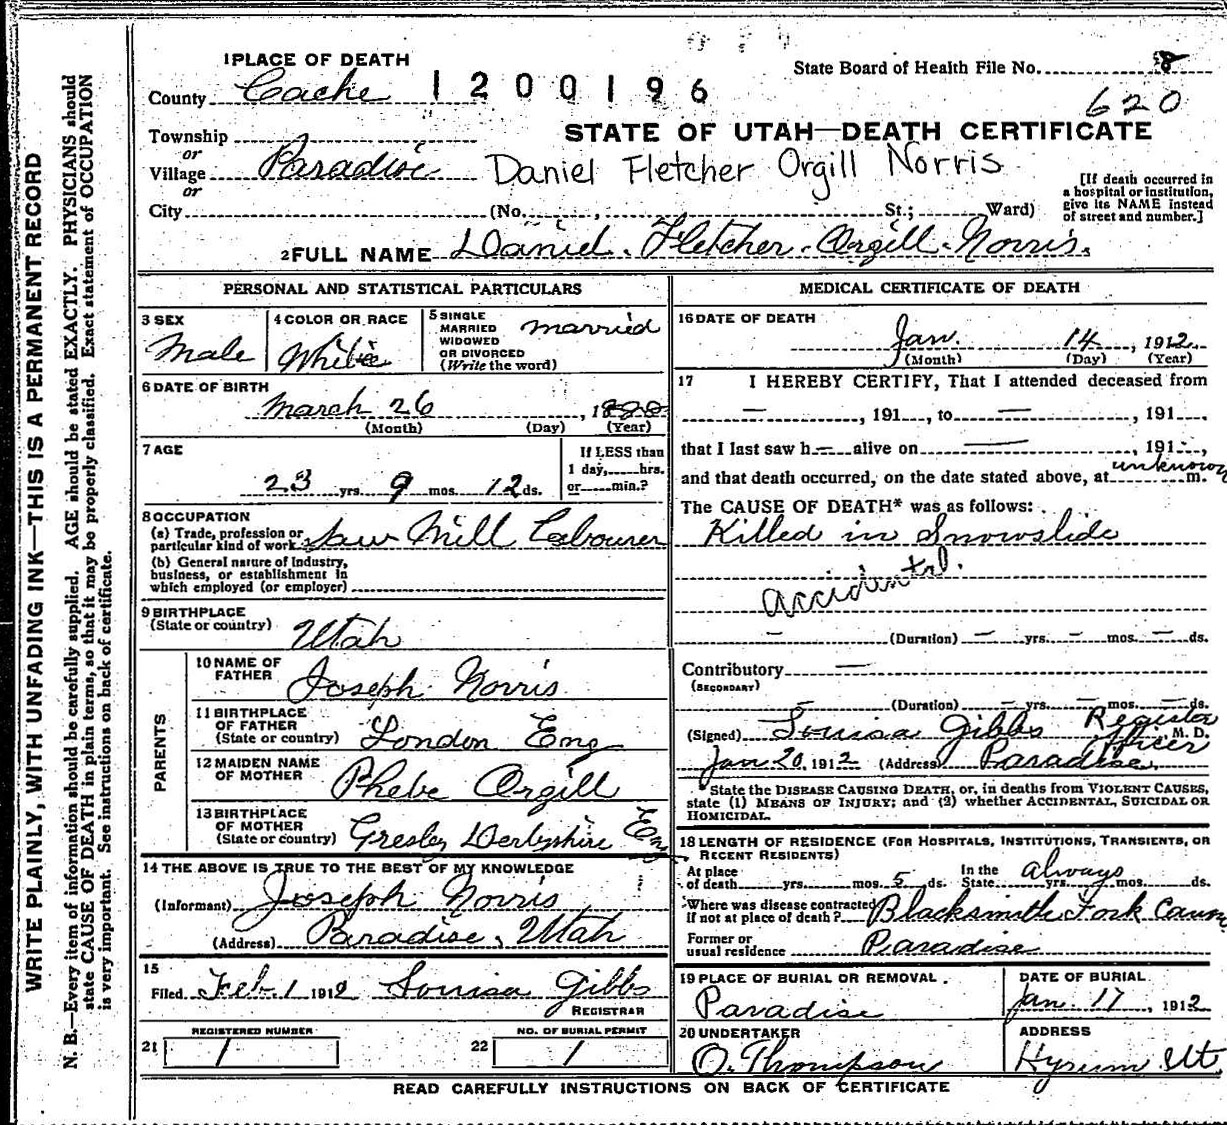 WRITE PLAINLY, WITH UNFADING INK—THIS IS A PERMANENT RECORD
N. B.—Every item of information should be carefully supplied. AGE should be stated EXACTLY. PHYSICIANS should
state CAUSE OF DEATH in plain terms, so that it may be properly classified. Exact statement of OCCUPATION
is very important. See instructions on back of certificate.
1 PLACE OF DEATH
State Board of Health File No. 8
County Cache 1200196
620
STATE OF UTAH—DEATH CERTIFICATE
Township
or
Village Paradise Daniel Fletcher Orgill Norris
or
[If death occurred in
a hospital or institution,
give its NAME instead
of street and number.]
City (No. , St.; Ward)
2 FULL NAME Daniel Fletcher Orgill Norris.
PERSONAL AND STATISTICAL PARTICULARS
3 SEX
Male
4 COLOR OR RACE
White
5 SINGLE
MARRIED
WIDOWED
OR DIVORCED
(Write the word)
married
6 DATE OF BIRTH
March 26 , 1
(Month) (Day) (Year)
7 AGE
23 yrs. 9 mos. 12 ds.
If LESS than
1 day, hrs.
or min.?
8 OCCUPATION
(a) Trade, profession or
particular kind of work Saw Mill Labourer
(b) General nature of industry,
business, or establishment in
which employed (or employer)
9 BIRTHPLACE
(State or country) Utah
PARENTS
10 NAME OF
FATHER Joseph Norris
11 BIRTHPLACE
OF FATHER
(State or country) London Eng
12 MAIDEN NAME
OF MOTHER Phebe Orgill
13 BIRTHPLACE
OF MOTHER
(State or country) Gresley Derbyshire Eng
14 THE ABOVE IS TRUE TO THE BEST OF MY KNOWLEDGE
(Informant) Joseph Norris
(Address) Paradise, Utah
15
Filed Feb. 1 1912 Louisa Gibbs
REGISTRAR
REGISTERED NUMBER
21 1
NO. OF BURIAL PERMIT
22 1
MEDICAL CERTIFICATE OF DEATH
16 DATE OF DEATH
Jan. 14 , 1912
(Month) (Day) (Year)
17 I HEREBY CERTIFY, That I attended deceased from
— , 191 , to — , 191 ,
that I last saw h — alive on — , 191 ,
and that death occurred, on the date stated above, at unknown m.
The CAUSE OF DEATH* was as follows:
Killed in Snowslide
accidental.
— (Duration) — yrs. — mos. — ds.
Contributory —
(SECONDARY)
— (Duration) — yrs. — mos. — ds.
(Signed) Louisa Gibbs Register Officer M. D.
Jan 20, 1912 (Address) Paradise
*State the DISEASE CAUSING DEATH, or, in deaths from VIOLENT CAUSES,
state (1) MEANS OF INJURY; and (2) whether ACCIDENTAL, SUICIDAL OR
HOMICIDAL.
18 LENGTH OF RESIDENCE (FOR HOSPITALS, INSTITUTIONS, TRANSIENTS, OR
RECENT RESIDENTS)
At place
of death yrs. mos. 5 ds.
In the
State always yrs. mos. ds.
Where was disease contracted
if not at place of death? Blacksmith Fork
Former or
usual residence Paradise
19 PLACE OF BURIAL OR REMOVAL
Paradise
DATE OF BURIAL
Jan. 17 , 1912
20 UNDERTAKER
O. Thompson
ADDRESS
Hyrum Ut.
READ CAREFULLY INSTRUCTIONS ON BACK OF CERTIFICATE